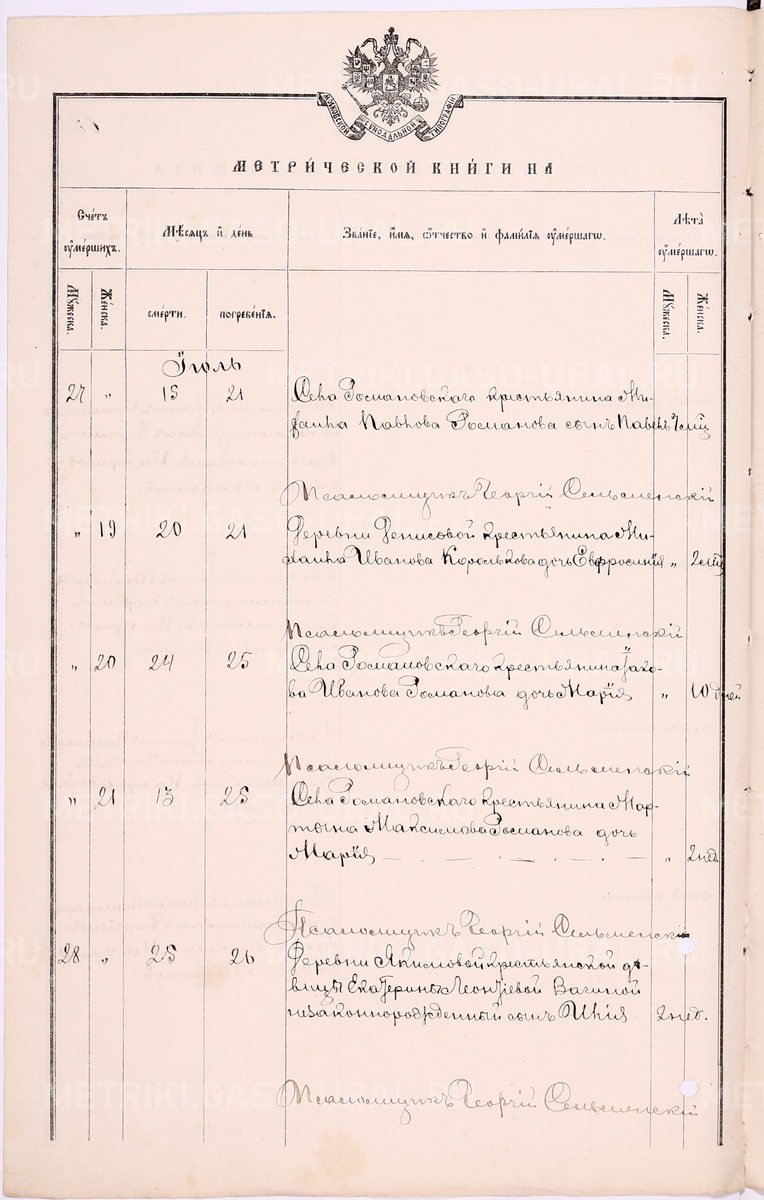 МОСКОВСКОЙ СѴНОДАЛЬНОЙ ТИПОГРАФІИ
МЕТРИ́ЧЕСКОЙ КНИ́ГИ НА
Сче́тъ ᲂу҆ме́ршихъ.
Мѣ́сяцъ и҆ де́нь
Зва́нїе, и҆́мѧ, ѻ҆́тчество и҆ фами́лїѧ ᲂу҆ме́ршагѡ.
Лѣ́та ᲂу҆ме́ршагѡ.
Мꙋ́жеска.
Же́нска.
сме́рти.
погребе́нїѧ.
Мꙋ́жеска.
Же́нска.
Іюль
27 „ 15 21 Села Романовскаго крестьянина Ми-
хаила Павлова Романова сынъ Павелъ 7 мц
Псаломщикъ Георгій Сельменскій
„ 19 20 21 Деревни Денисовой крестьянина Ми-
хаила Иванова Королькова дочь Евфросинія „ 2 мц
Псаломщикъ Георгій Сельменскій
„ 20 24 25 Села Романовскаго крестьянина Іако-
ва Иванова Романова дочь Марія „ 10 дней
Псаломщикъ Георгій Сельменскій
„ 21 13 25 Села Романовскаго крестьянина Мар-
тына Максимова Романова дочь
Марія „ 2 нед.
Псаломщикъ Георгій Сельменскій
28 „ 25 26 Деревни Якимовой крестьянской дѣ-
вицы Екатерины Леонтіевой Вагиной
незаконнорожденный сынъ Илія 2 нед.
Псаломщикъ Георгій Сельменскій
METRIKI.GASO-URAL.RU